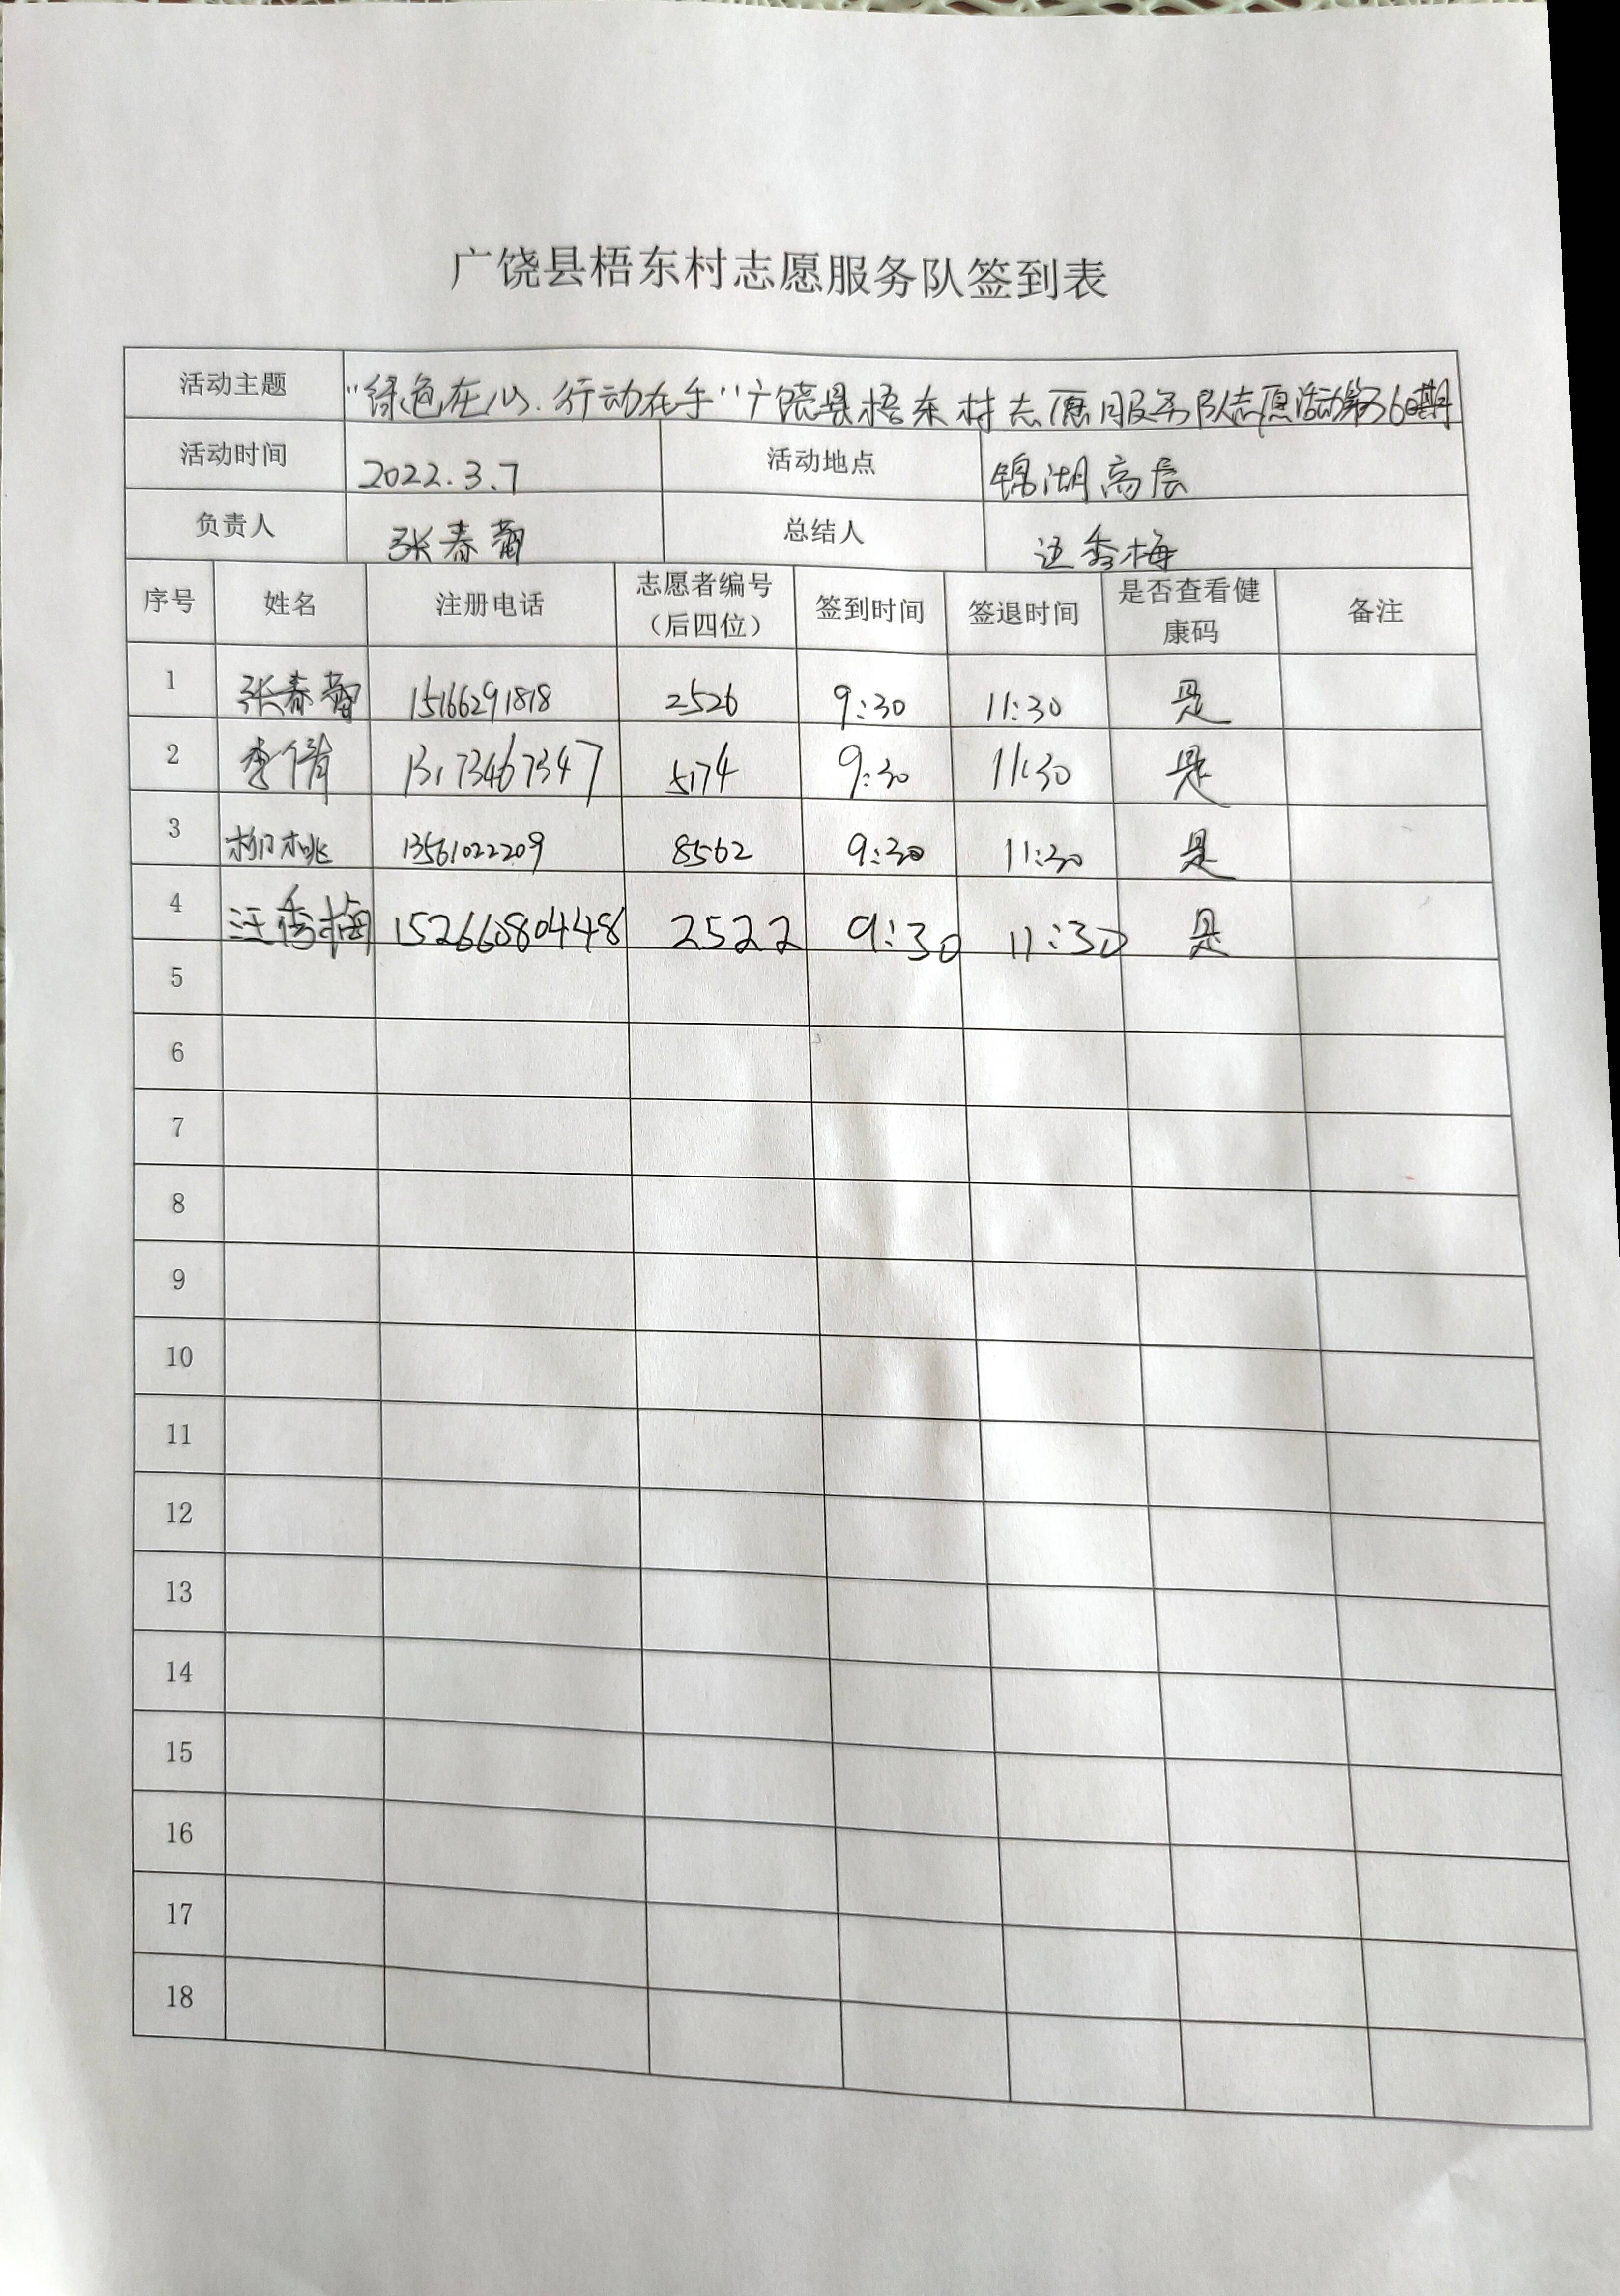 广饶县梧东村志愿服务队签到表
活动主题 “绿色在心.行动在手”广饶县梧东村志愿服务队志愿活动第36期
活动时间 2022.3.7 活动地点 锦湖高层
负责人 张春蕾 总结人 汪秀梅
序号 姓名 注册电话 志愿者编号（后四位） 签到时间 签退时间 是否查看健康码 备注
1 张春蕾 15166291818 2526 9:30 11:30 是
2 李倩 13173467347 5174 9:30 11:30 是
3 柳桃 13561022209 8562 9:30 11:30 是
4 汪秀梅 15266080448 2522 9:30 11:30 是
5
6
7
8
9
10
11
12
13
14
15
16
17
18